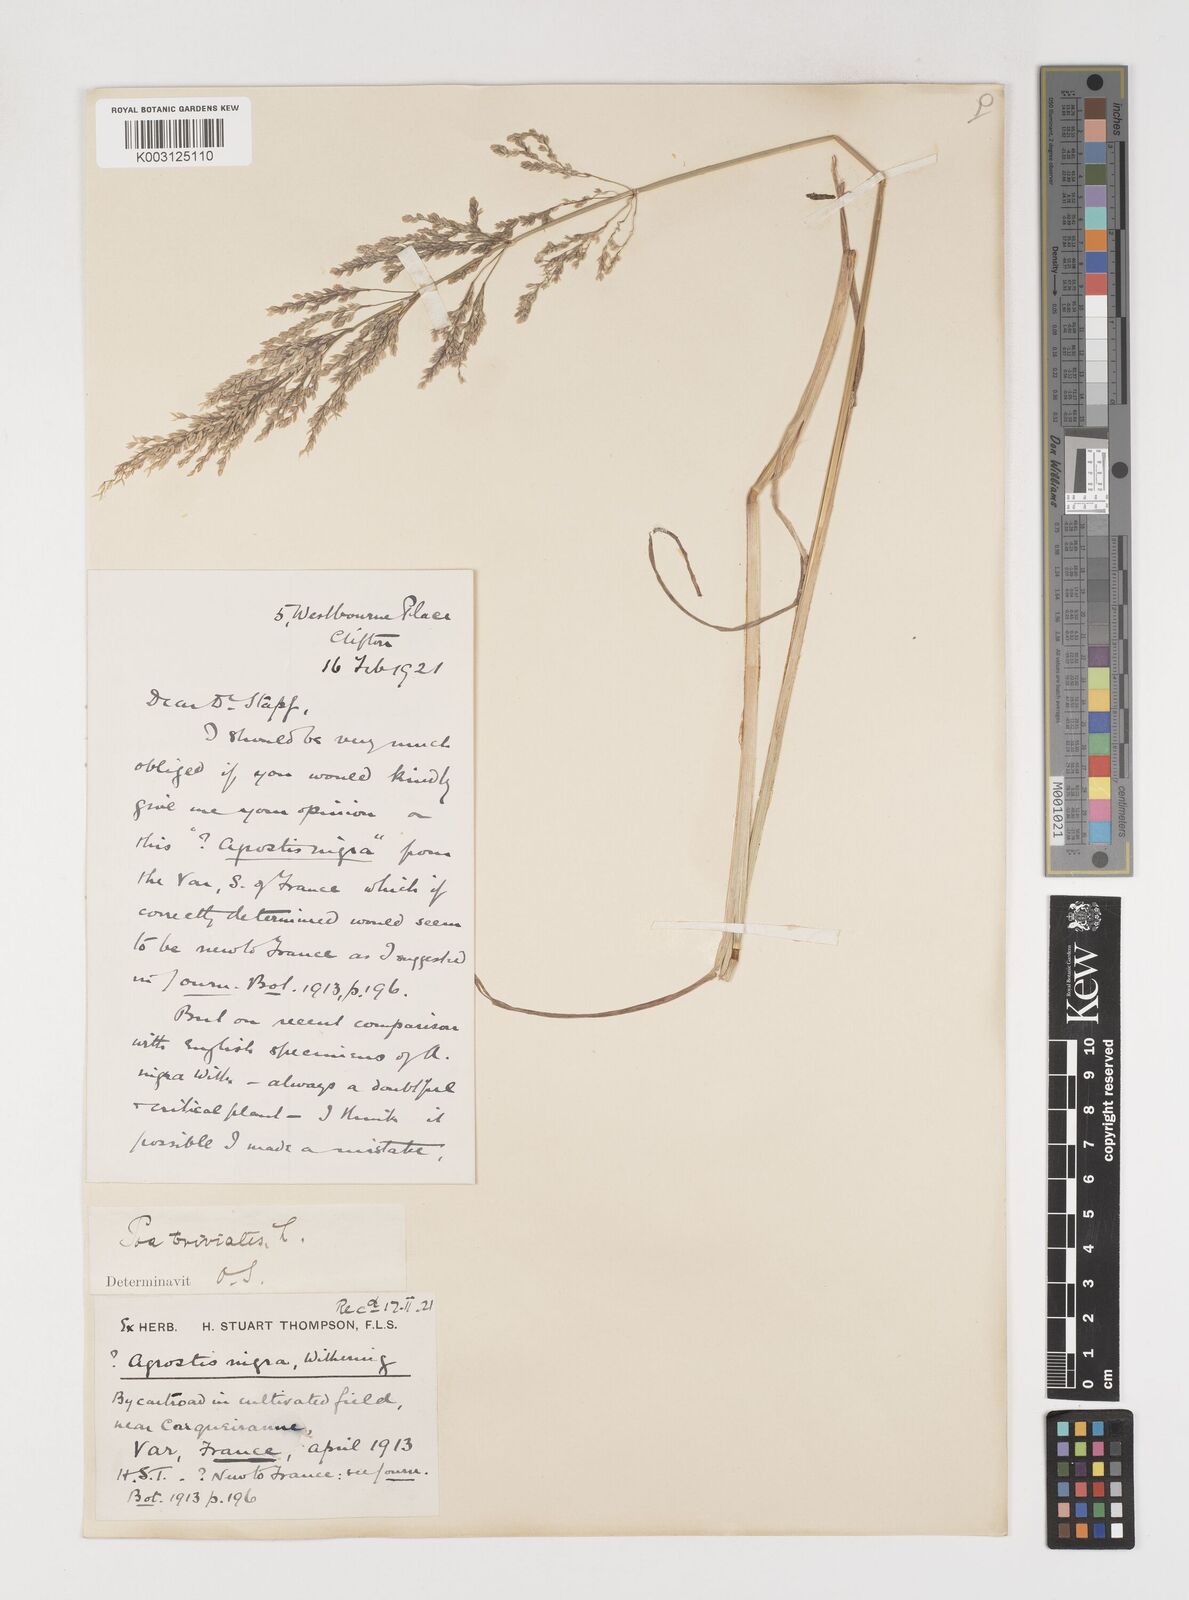 ROYAL BOTANIC GARDENS KEW
K003125110
5, Westbourne Place
Clifton
16 Feb 1921
Dear Dr Stapf,
I should be very much
obliged if you would kindly
give me your opinion on
this "? Agrostis nigra" from
the Var, S. of France which if
correctly determined would seem
to be new to France as I suggested
in Journ. Bot. 1913, p. 196.
But on recent comparison
with English specimens of A.
nigra With. - always a doubtful
+ critical plant - I think it
possible I made a mistake,
Poa trivialis, L.
Determinavit O.S.
Recd 17.II.21
Ex HERB. H. STUART THOMPSON, F.L.S.
? Agrostis nigra, Withering
By cartroad in cultivated field,
near Carqueiranne,
Var, France, April 1913
H.S.T. - ? New to France: see Journ.
Bot. 1913 p. 196
inches
Density
Don Williams
centimeters
M001021
Royal Botanic Gardens
Kew
0 1 2 3 4 5 6 7 8 9 10
cm
copyright reserved